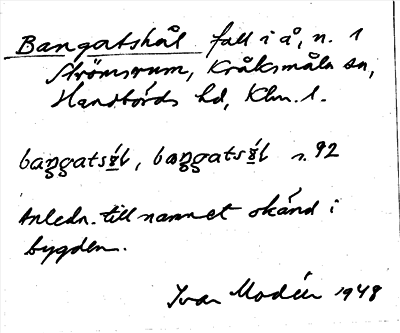 Bangatshål fall i å, n. 1
Strömsrum, Kråksmåla sn,
Handbörds hd, Klm. l.
baŋgatsɷ́l, baŋgatsɷ̀l s. 92
Anledn. till namnet okänd i
bygden.
Ivar Modéer 1948